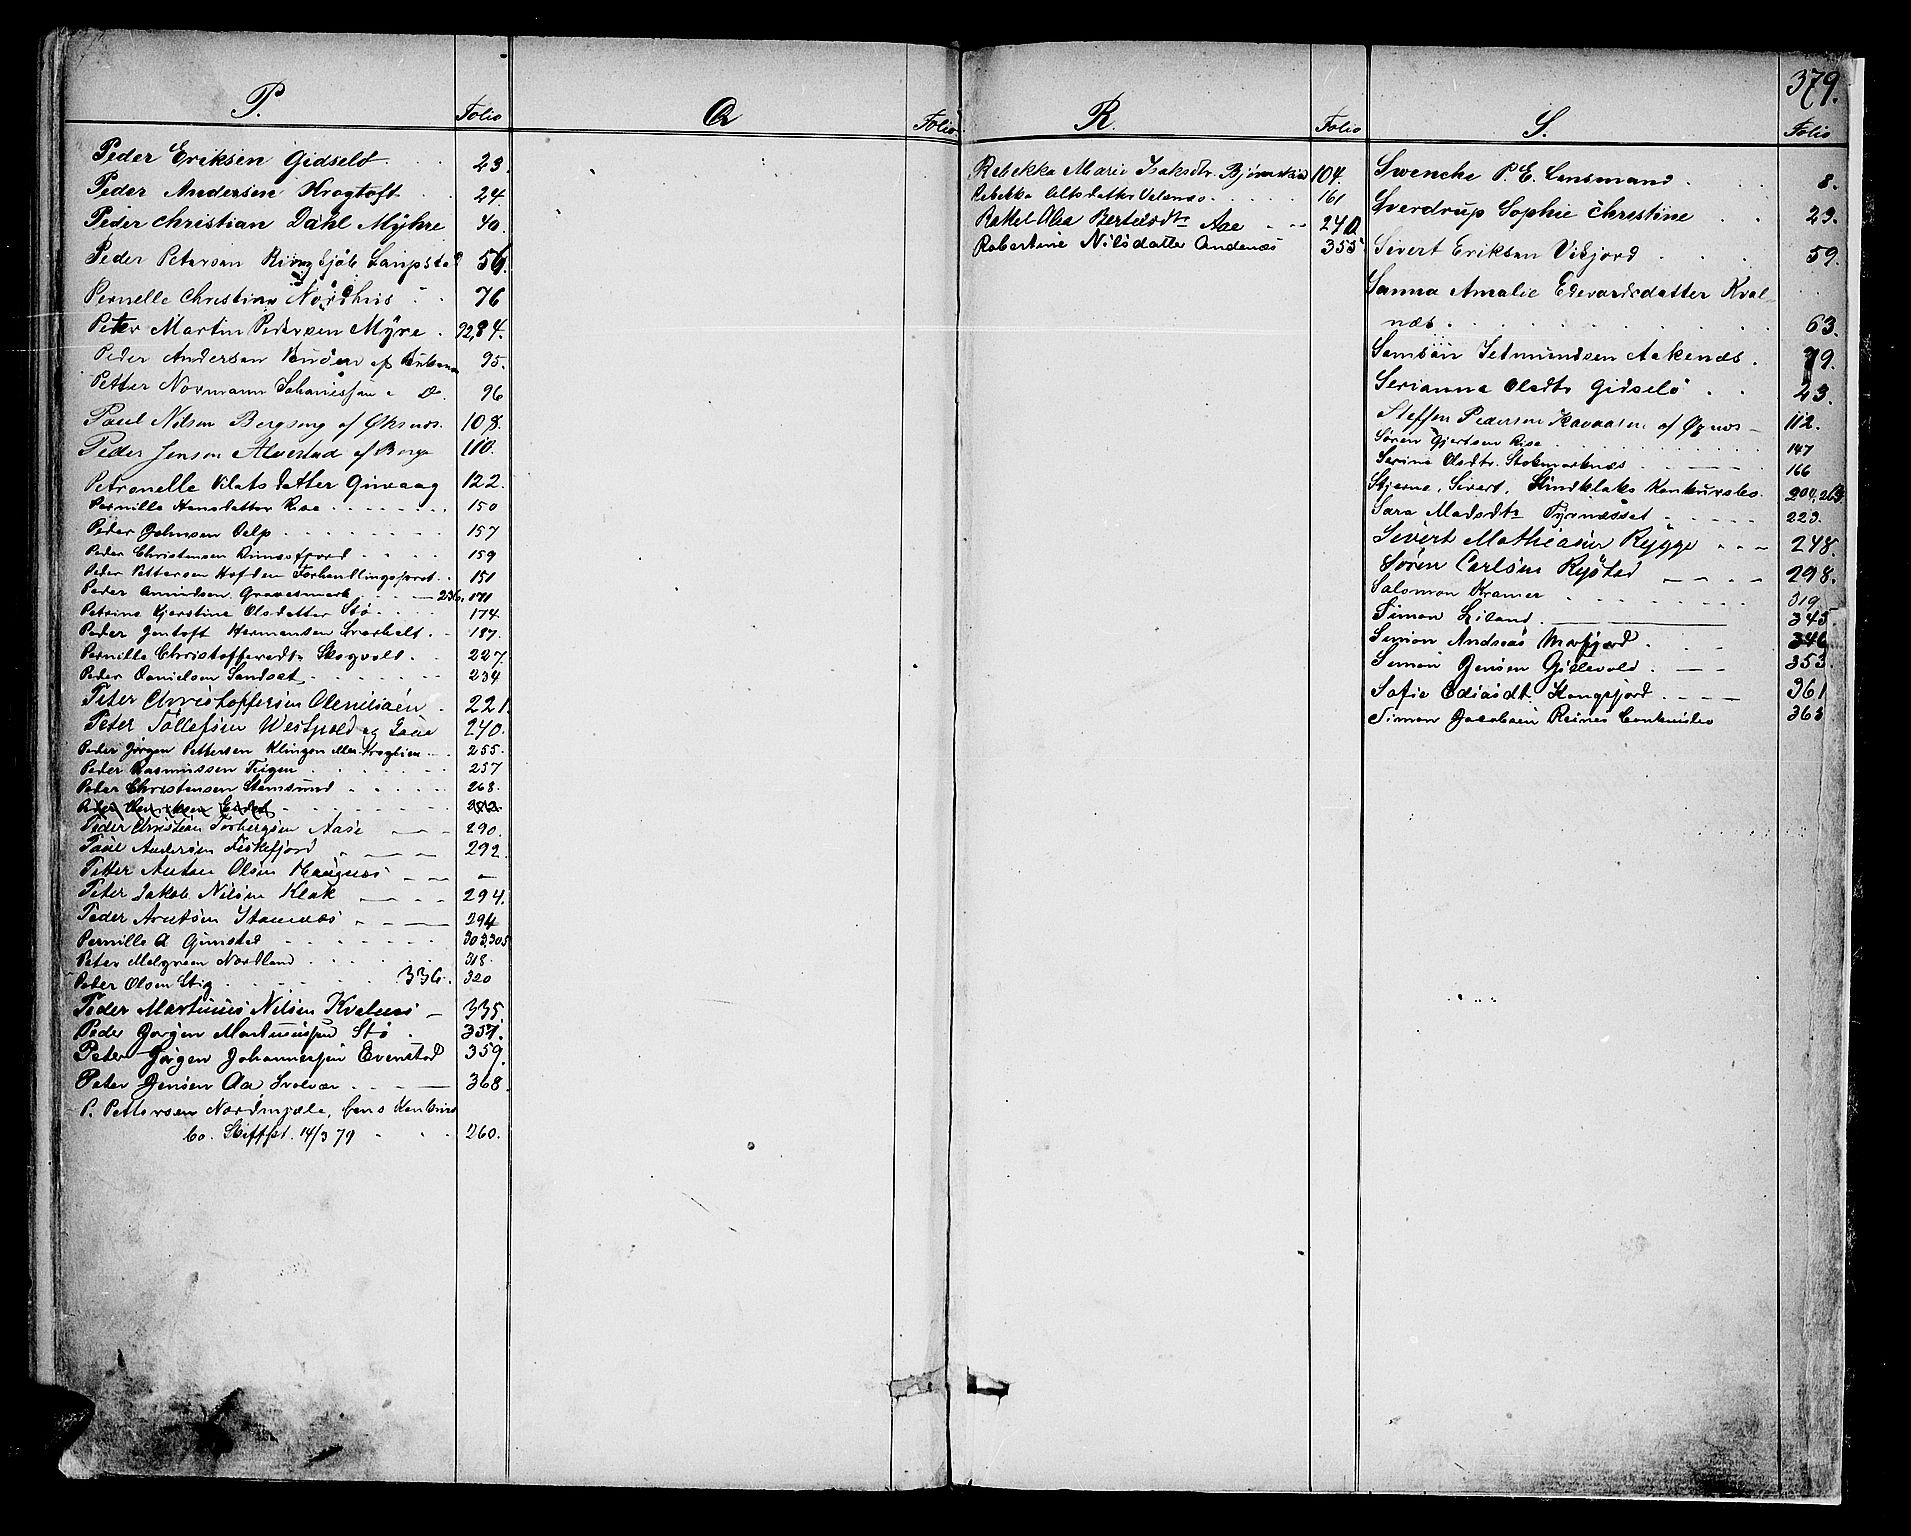 P. Folio
Peder Eriksen Gidselö 23.
Peder Andersen Krogtoft 24
Peder Christian Dahl Myhre 40.
Peder Petersen 56.
Pernelle Christina Nordhus 76
Peter Martin Pedersen Myre 72,84.
Peder Andersen af 95.
Petter Normann Johanissen 96
Paul Nilsen Bergseng af Øksnæs 108.
Peder Jenson Alvestad af Borge 110.
Petronelle Pilatsdatter Givaag 122.
Pernille Hansdatter Rise 150
Peder Johnsen Delp 157
Peder Christensen 159
Peder Pettersen Hofden Forhandlingsprot. 151
Peder Amundsen Gravermark 236, 171
Petrine Kjerstine Olsdatter Stö 174
Peder Jentoft Hermansen Svarholt 187.
Pernille Christoffersdtr Skogvold 227.
Peder Danielsen Sandset 234
Peter Christoffersen Olenilsøen 221.
Peter Tollefsen Westpold og 240.
Peder Jörgen Pettersen Klingen eller Kroglien 255.
Peder Rasmussen Teigen 257
Peder Christensen Stamsund 268.
Peder Henriksen Eidet 282
Peder Christian Torbergsen Aase 290.
Paul Andersen Fiskefjord 292.
Petter Antan Olsen Haugnæs -
Peter Jakob Nilsen Klak 294.
Peder Arntsen Stamnæs 294
Pernille A Gimstad 303,305
Peter Melgreen Nordland 318.
Peder Olsen Stig 336. 320
Peder Martinus Nilsen Kvalnæs 335.
Peder Jörgen Martinussen Stö 357.
Peter Jörgen Johannessen Evenstad 359.
Peter Jensen Aa Svolvær 368.
P. Pettersen Nordmjele,
bo. Skiftet. 14/3 79 260.
Q Folio.
R. Folio
Rebekka Marie Isaksdtr. Bjørnskind 104.
Rebekka Olsdatter 161
Rakel Alea Bertelsdtr Aae 240
Robertine Nilsdatter Andenæs 355.
379.
S. Folio
Swenche P. E. Lensmand 8.
Sverdrup Sophie Christine 23.
Sivert Eriksen Vikjord 59.
Sanna Amalie Edevardsdatter Kval-
næs 63.
Samson Jetmundsen Aakenæs 79.
Serianna Olsdtr Gidselö 23.
Steffen Pedersen af 112.
Søren Gjertsen Rise 147
Serine Olsdtr. Stokmarknæs 166
Stjerne, Sivert, Konkursbo. 204,263
Sara Madsdtr Tyvnæsset 223.
Sivert Matheasen Rygge 248.
Søren Carlsen Rystad 298.
Salomon Kramer 319
Simon Liland 345.
Simon Andreas Morfjord 346
Simon Jensen Gislevold 353.
Sofie Ediasdt. Kongsfjord 361
Simon Jacobsen Reines 363